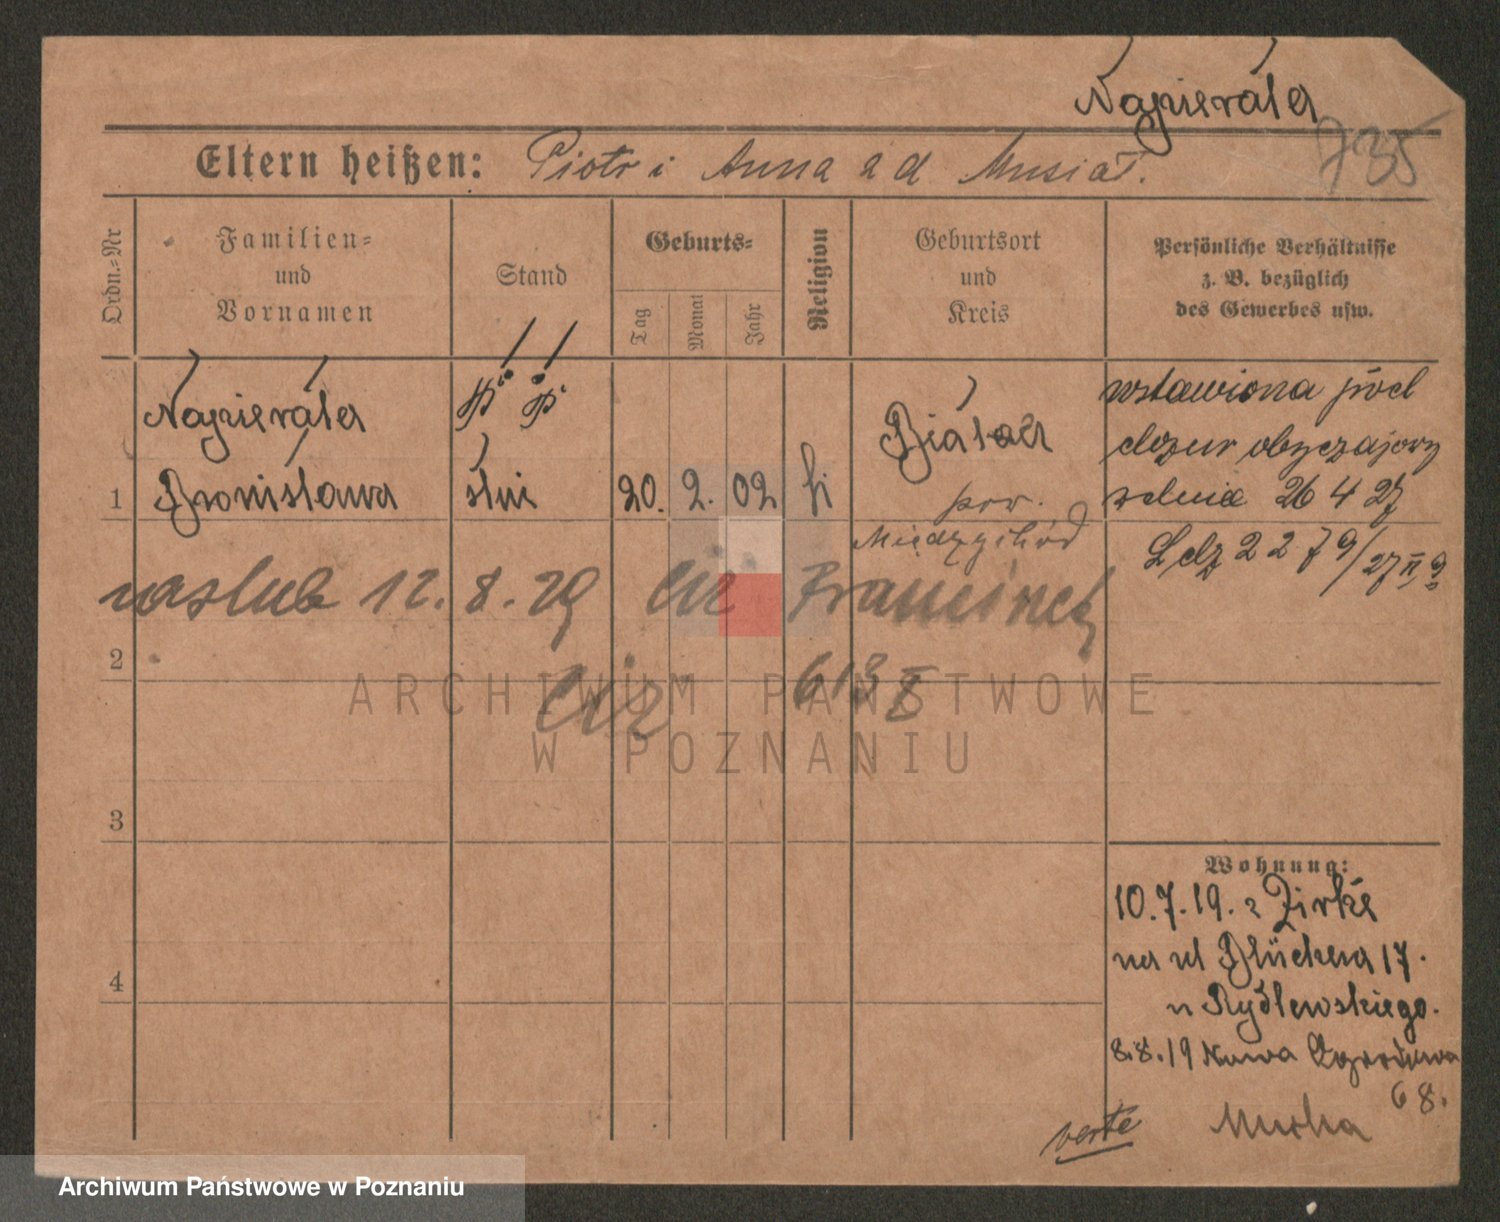 Napierała
735
Eltern heißen: Piotr i Anna ad Musiał.
Ordn.=Nr
Familien=
und
Vornamen
Stand
Geburts=
Tag
Monat
Jahr
Religion
Geburtsort
und
Kreis
Persönliche Verhältnisse
z. B. bezüglich
des Gewerbes usw.
Napierała
Bronisława
służ
20. 2. 02
pow.
Międzychód
wstawiona pod
dozór obyczajowy
26 4 27
L dz 2279/27
1
12. 8. 29
Franciszek
2
613
3
4
Wohnung:
10.7.19. z Zirke
na ul Blüchera 17.
u Rydlewskiego.
8.8.19 Nowa Ogrodowa
68.
verte
ARCHIWUM PAŃSTWOWE
W POZNANIU
Archiwum Państwowe w Poznaniu